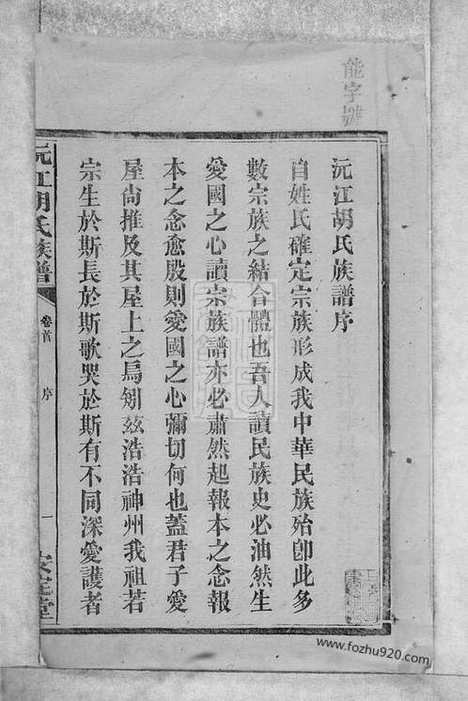 能字號
沅江胡氏族譜序
自姓氏確定宗族形成我中華民族殆卽此多
數宗族之結合體也吾人讀民族史必油然生
愛國之心讀宗族譜亦必肅然起報本之念報
本之念愈殷則愛國之心彌切何也蓋君子愛
屋尙推及其屋上之烏矧茲浩浩神州我祖若
宗生於斯長於斯歌哭於斯有不同深愛護者
沅江胡氏族譜
卷首
序
一
安定堂
www.fozhu920.com